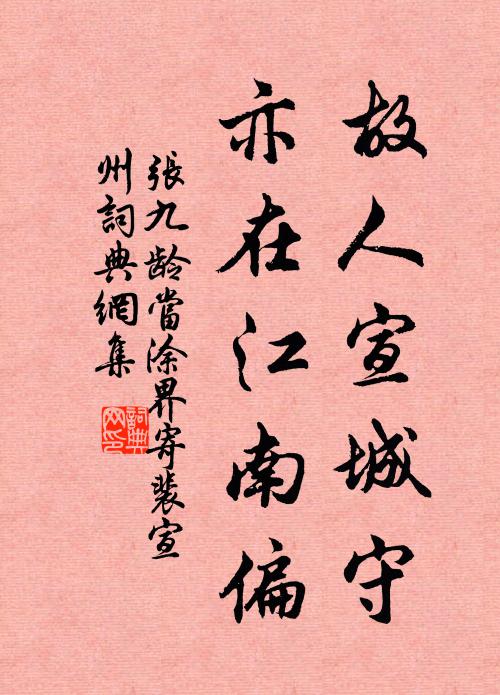 故人宣城守
亦在江南偏
張九龄當涂界寄裴宣
州詞典網集
詞典
网印